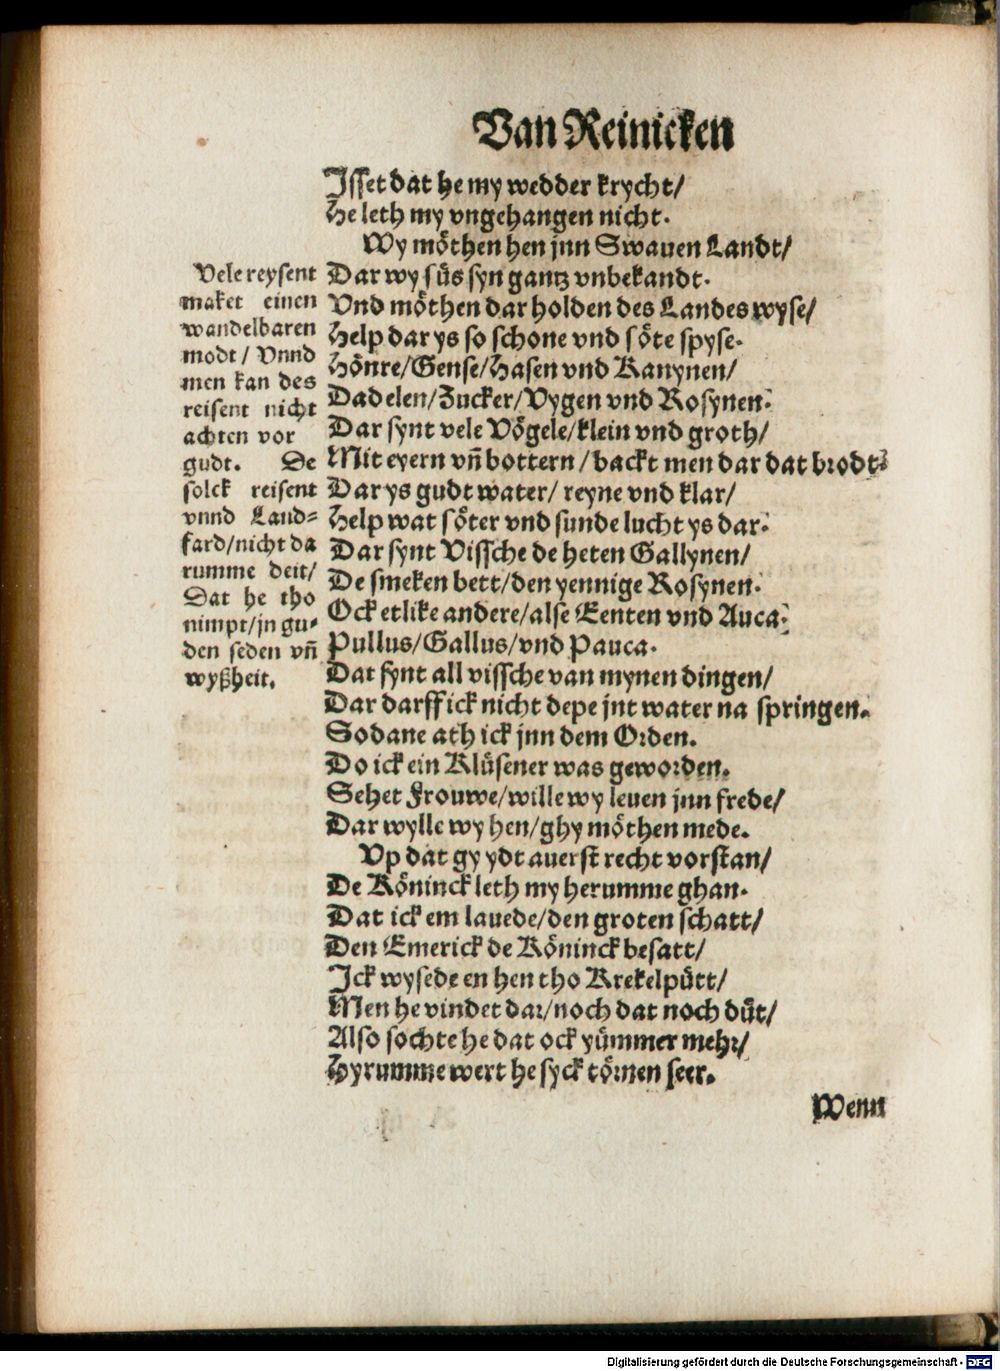 Van Reinicken
Isset dat he my wedder krycht/
He leth my vngehangen nicht.
Wy möthen hen jnn Swauen Landt/
Dar wy süs syn gantz vnbekandt.
Vnd möthen dar holden des Landes wyse/
Help dar ys so schone vnd söte spyse.
Hönre/Gense/Hasen vnd Kanynen/
Dadelen/Zucker/Vygen vnd Rosynen.
Dar synt vele Vögele/klein vnd groth/
Mit eyern vñ bottern/backt men dar dat brodt.
Dar ys gudt water/ reyne vnd klar/
Help wat söter vnd sunde lucht ys dar.
Dar synt Vissche de heten Gallynen/
De smeken bett/den yennige Rosynen.
Ock etlike andere/alse Eenten vnd Auca.
Pullus/Gallus/vnd Pauca.
Dat synt all vissche van mynen dingen/
Dar darff ick nicht depe jnt water na springen.
Sodane ath ick jnn dem Orden.
Do ick ein Klüsener was geworden.
Sehet Frouwe/wille wy leuen jnn frede/
Dar wylle wy hen/ghy möthen mede.
Vp dat gy ydt auerst recht vorstan/
De Köninck leth my herumme ghan.
Dat ick em lauede/den groten schatt/
Den Emerick de Köninck besatt/
Ick wysede en hen tho Krekelpütt/
Men he vindet dar/noch dat noch düt/
Also sochte he dat ock yümmer mehr/
Hyrumme wert he syck törnen seer.
Vele reysent
maket einen
wandelbaren
modt / Vnnd
men kan des
reisent nicht
achten vor
gudt. De
solck reisent
vnnd Land=
fard/nicht da
rumme deit/
Dat he tho
nimpt/jn gu=
den seden vñ
wyßheit.
Wenn
Digitalisierung gefördert durch die Deutsche Forschungsgemeinschaft - DFG